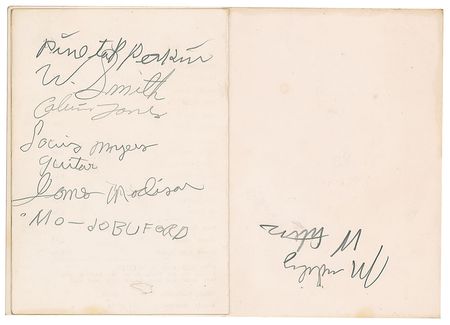 Pinetop Perkins
W. Smith
Calvin Jones
Louis Myers
guitar
James Madison
"MO-JO BUFORD
Muddy
W